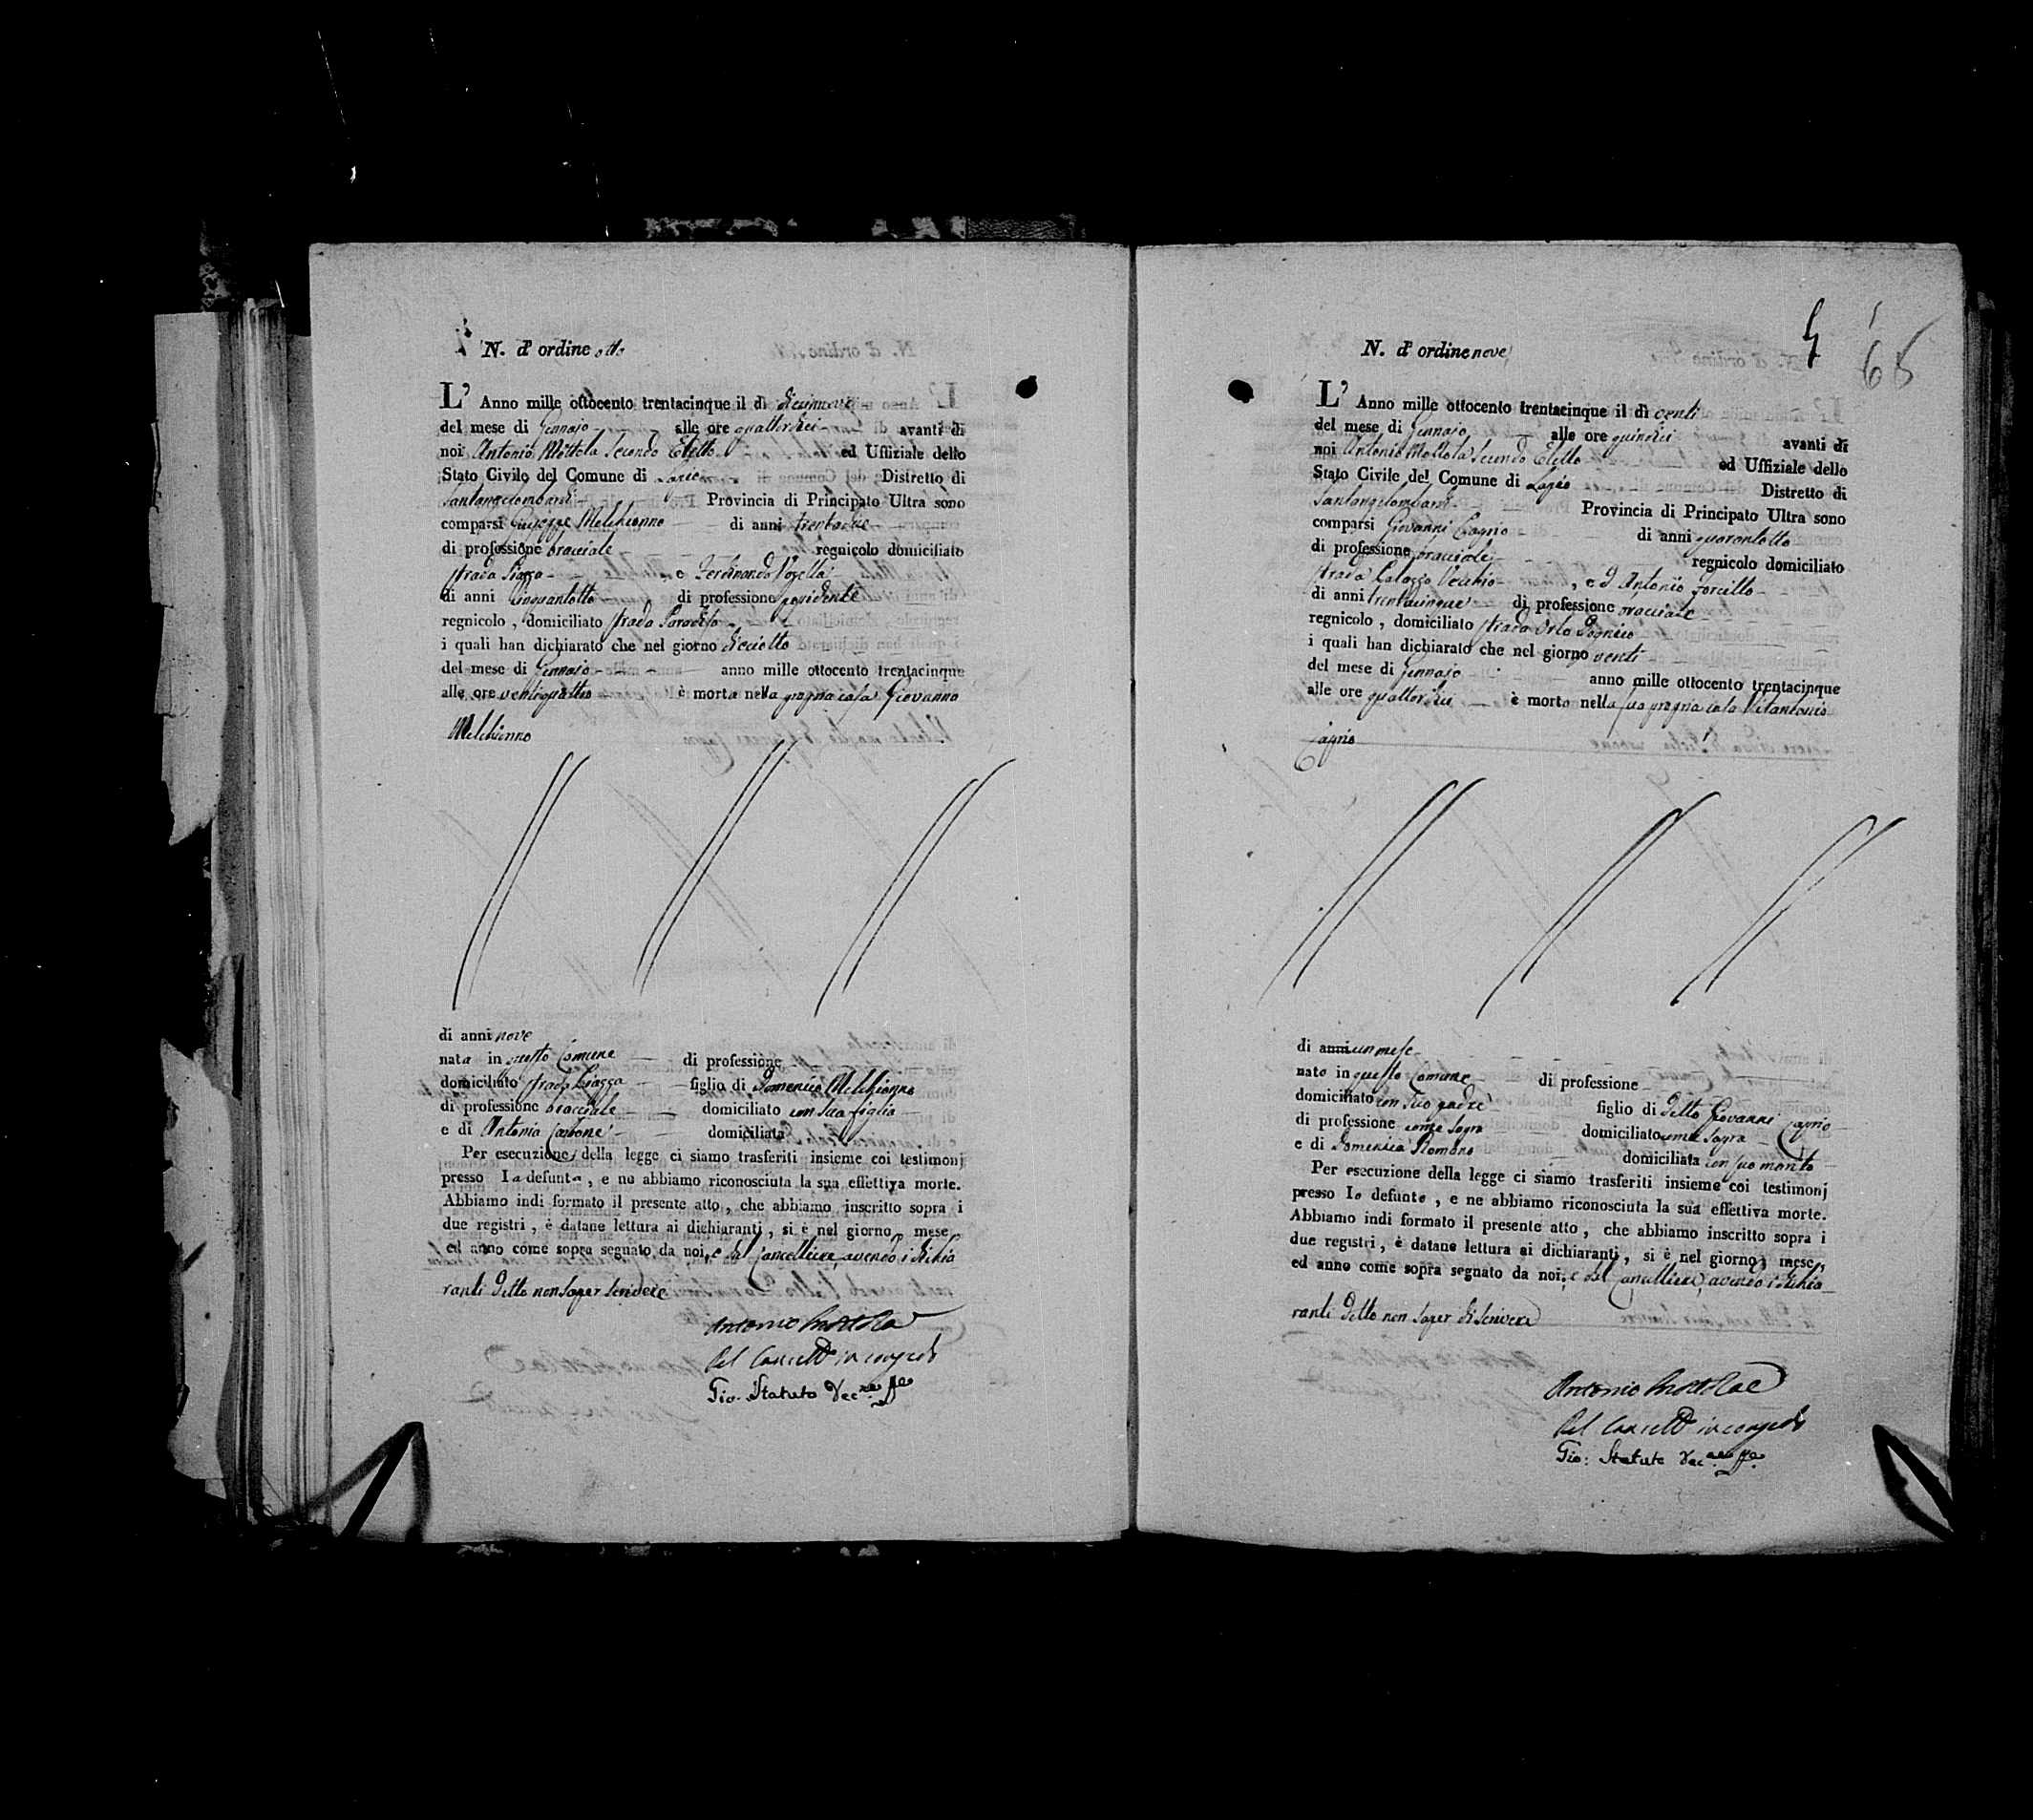 N. d' ordine otto
L' Anno mille ottocento trentacinque il dì diecinnove
del mese di Gennajo alle ore quattordici avanti di
noi Antonio Mottola Secondo Eletto ed Uffiziale dello
Stato Civile del Comune di Distretto di
Santangelombardi Provincia di Principato Ultra sono
comparsi Giuseppe Melchionno di anni
di professione bracciale regnicolo domiciliato
strada Piazza e Ferdinando Vozella
di anni cinquantotto di professione possidente
regnicolo, domiciliato strada Paradiso
i quali han dichiarato che nel giorno dieciotto
del mese di Gennajo anno mille ottocento trentacinque
alle ore ventiquattro è morta nella propria casa Giovanna
Melchionno
di anni nove
nata in questo Comune di professione
domiciliato strada Piazza figlio di Domenico Melchionno
di professione bracciale domiciliato con sua figlia
e di Antonia Carbone domiciliata
Per esecuzione della legge ci siamo trasferiti insieme coi testimonj
presso la defunta, e ne abbiamo riconosciuta la sua effettiva morte.
Abbiamo indi formato il presente atto, che abbiamo inscritto sopra i
due registri, è datane lettura ai dichiaranti, si è nel giorno, mese,
ed anno come sopra segnato da noi, e dal Cancelliere, avendo i dichia
ranti detto non saper scrivere
Antonio Mottola
Pel Cancell.e in congedo
Gio. Statuto
N. d' ordine nove
65
L' Anno mille ottocento trentacinque il dì venti
del mese di Gennajo alle ore quindici avanti di
noi Antonio Mottola Secondo Eletto ed Uffiziale dello
Stato Civile del Comune di Distretto di
Santangelombardi Provincia di Principato Ultra sono
comparsi Giovanni Caprio di anni quarantotto
di professione bracciale regnicolo domiciliato
strada Palazzo Vecchio, e d Antonio Forcillo
di anni trentacinque di professione bracciale
regnicolo, domiciliato strada Orto
i quali han dichiarato che nel giorno venti
del mese di Gennajo anno mille ottocento trentacinque
alle ore quattordici è morto nella sua propria casa Vitantonio
Caprio
di anni un mese
nato in questo Comune di professione
domiciliato con suo padre figlio di detto Giovanni Caprio
di professione come sopra domiciliato come sopra
e di Domenica Romano domiciliata con suo marito
Per esecuzione della legge ci siamo trasferiti insieme coi testimonj
presso lo defunto, e ne abbiamo riconosciuta la sua effettiva morte.
Abbiamo indi formato il presente atto, che abbiamo inscritto sopra i
due registri, è datane lettura ai dichiaranti, si è nel giorno, mese,
ed anno come sopra segnato da noi, e dal Cancelliere, avendo i dichia
ranti detto non saper di scrivere
Antonio Mottola
Pel Cancell.e in congedo
Gio: Statuto